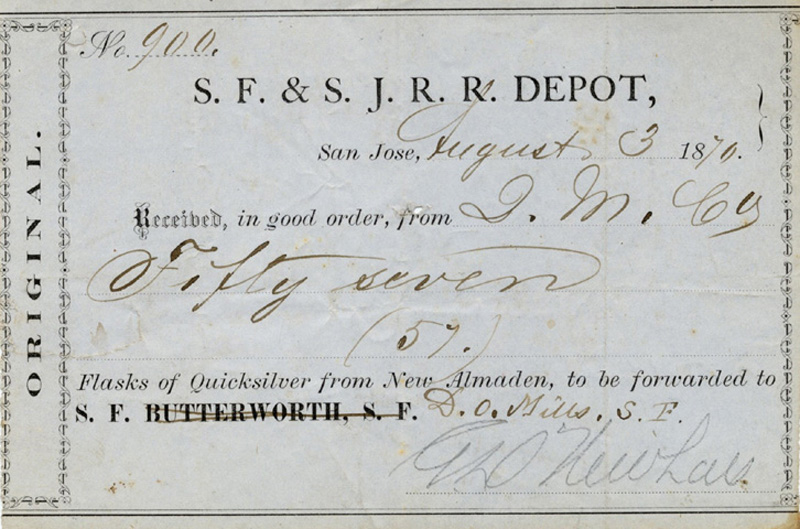 No. 900.
S. F. & S. J. R. R. DEPOT,
San Jose, August 3 1870.
Received, in good order, from Q. M. Co
Fifty seven
(57.)
Flasks of Quicksilver from New Almaden, to be forwarded to
S. F. BUTTERWORTH, S. F. D. O. Mills, S. F.
ORIGINAL.